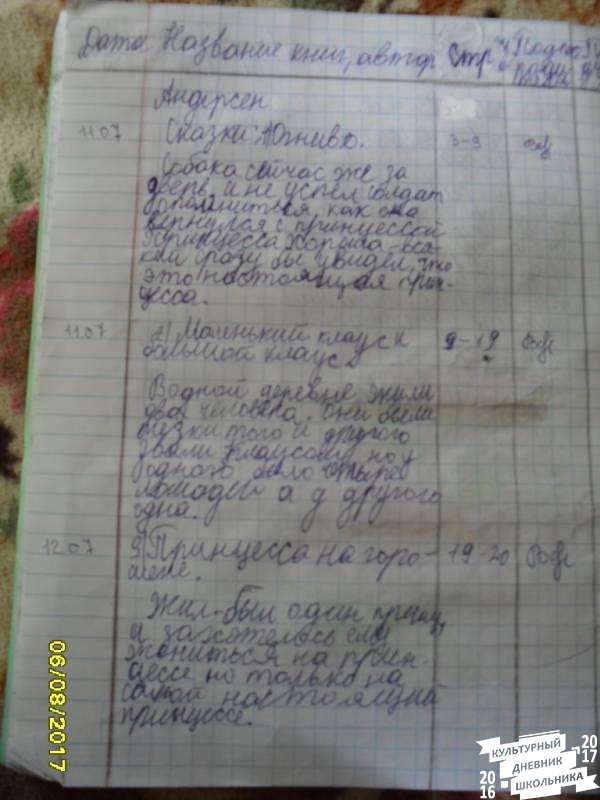 Дата Название книг, автор Стр
Андерсен
11 07 Сказки: Огниво. 3-9
Собака сейчас же за
дверь, и не успел солдат
опомниться, как она
вернулася с принцессой
Принцесса хороша вся-
кий сразу бы увидел, что
это настоящая прин-
цесса.
11 07 2) Маленький клаус и 9-19
большой клаус
В одной деревне жили
два человека. Они были
тезки того и другого
звали клаусом, но у
одного было четыре
лошади а у другого
одна.
12 07 3) Принцесса на горо- 19-20
шене.
Жил-был один принц,
и захотелось ему
жениться на прин-
цессе но только на
самой настоящей
принцессе.
06/08/2017
КУЛЬТУРНЫЙ 20
ДНЕВНИК 17
20 ШКОЛЬНИКА
16